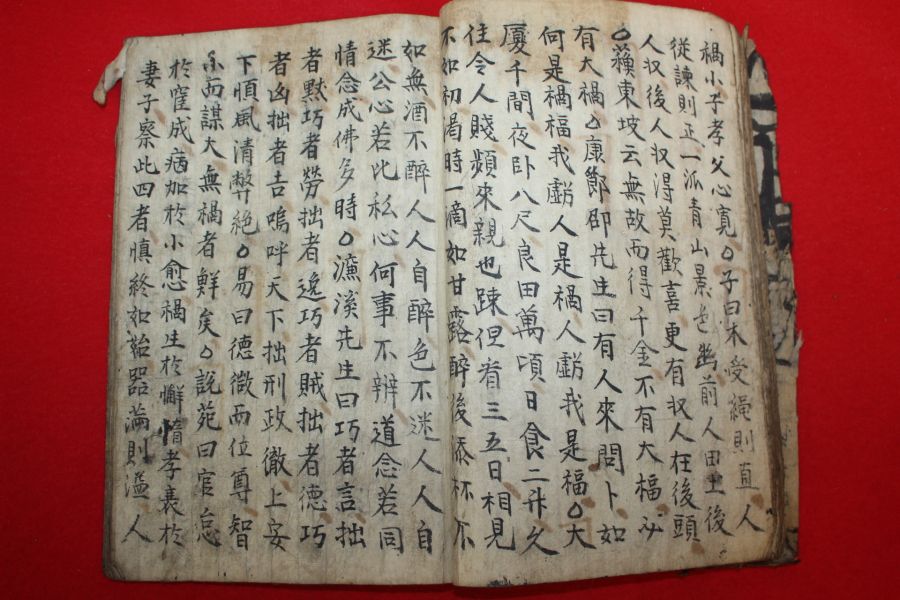 禍小子孝父心寬○子曰木受繩則直人
從諫則正一派青山景色幽前人田土後
人収後人収得莫歡喜更有収人在後頭
○蘓東坡云無故而得千金不有大福必
有大禍○康節邵先生曰有人來問卜如
何是禍福我虧人是禍人虧我是福○大
厦千間夜卧八尺良田萬頃日食二升久
住令人賤頻來親也踈但看三五日相見
不如初渴時一滴如甘露醉後添杯不
如無酒不醉人人自醉色不迷人人自
迷公心若比私心何事不辨道念若同
情念成佛多時○濂溪先生曰巧者言拙
者默巧者勞拙者逸巧者賊拙者德巧
者凶拙者吉嗚呼天下拙刑政徹上安
下順風清弊絕○易曰德微而位尊智
小而謀大無禍者鮮矣○說苑曰官怠
於宦成病加於小愈禍生於懈惰孝衰於
妻子察此四者慎終如始器滿則溢人